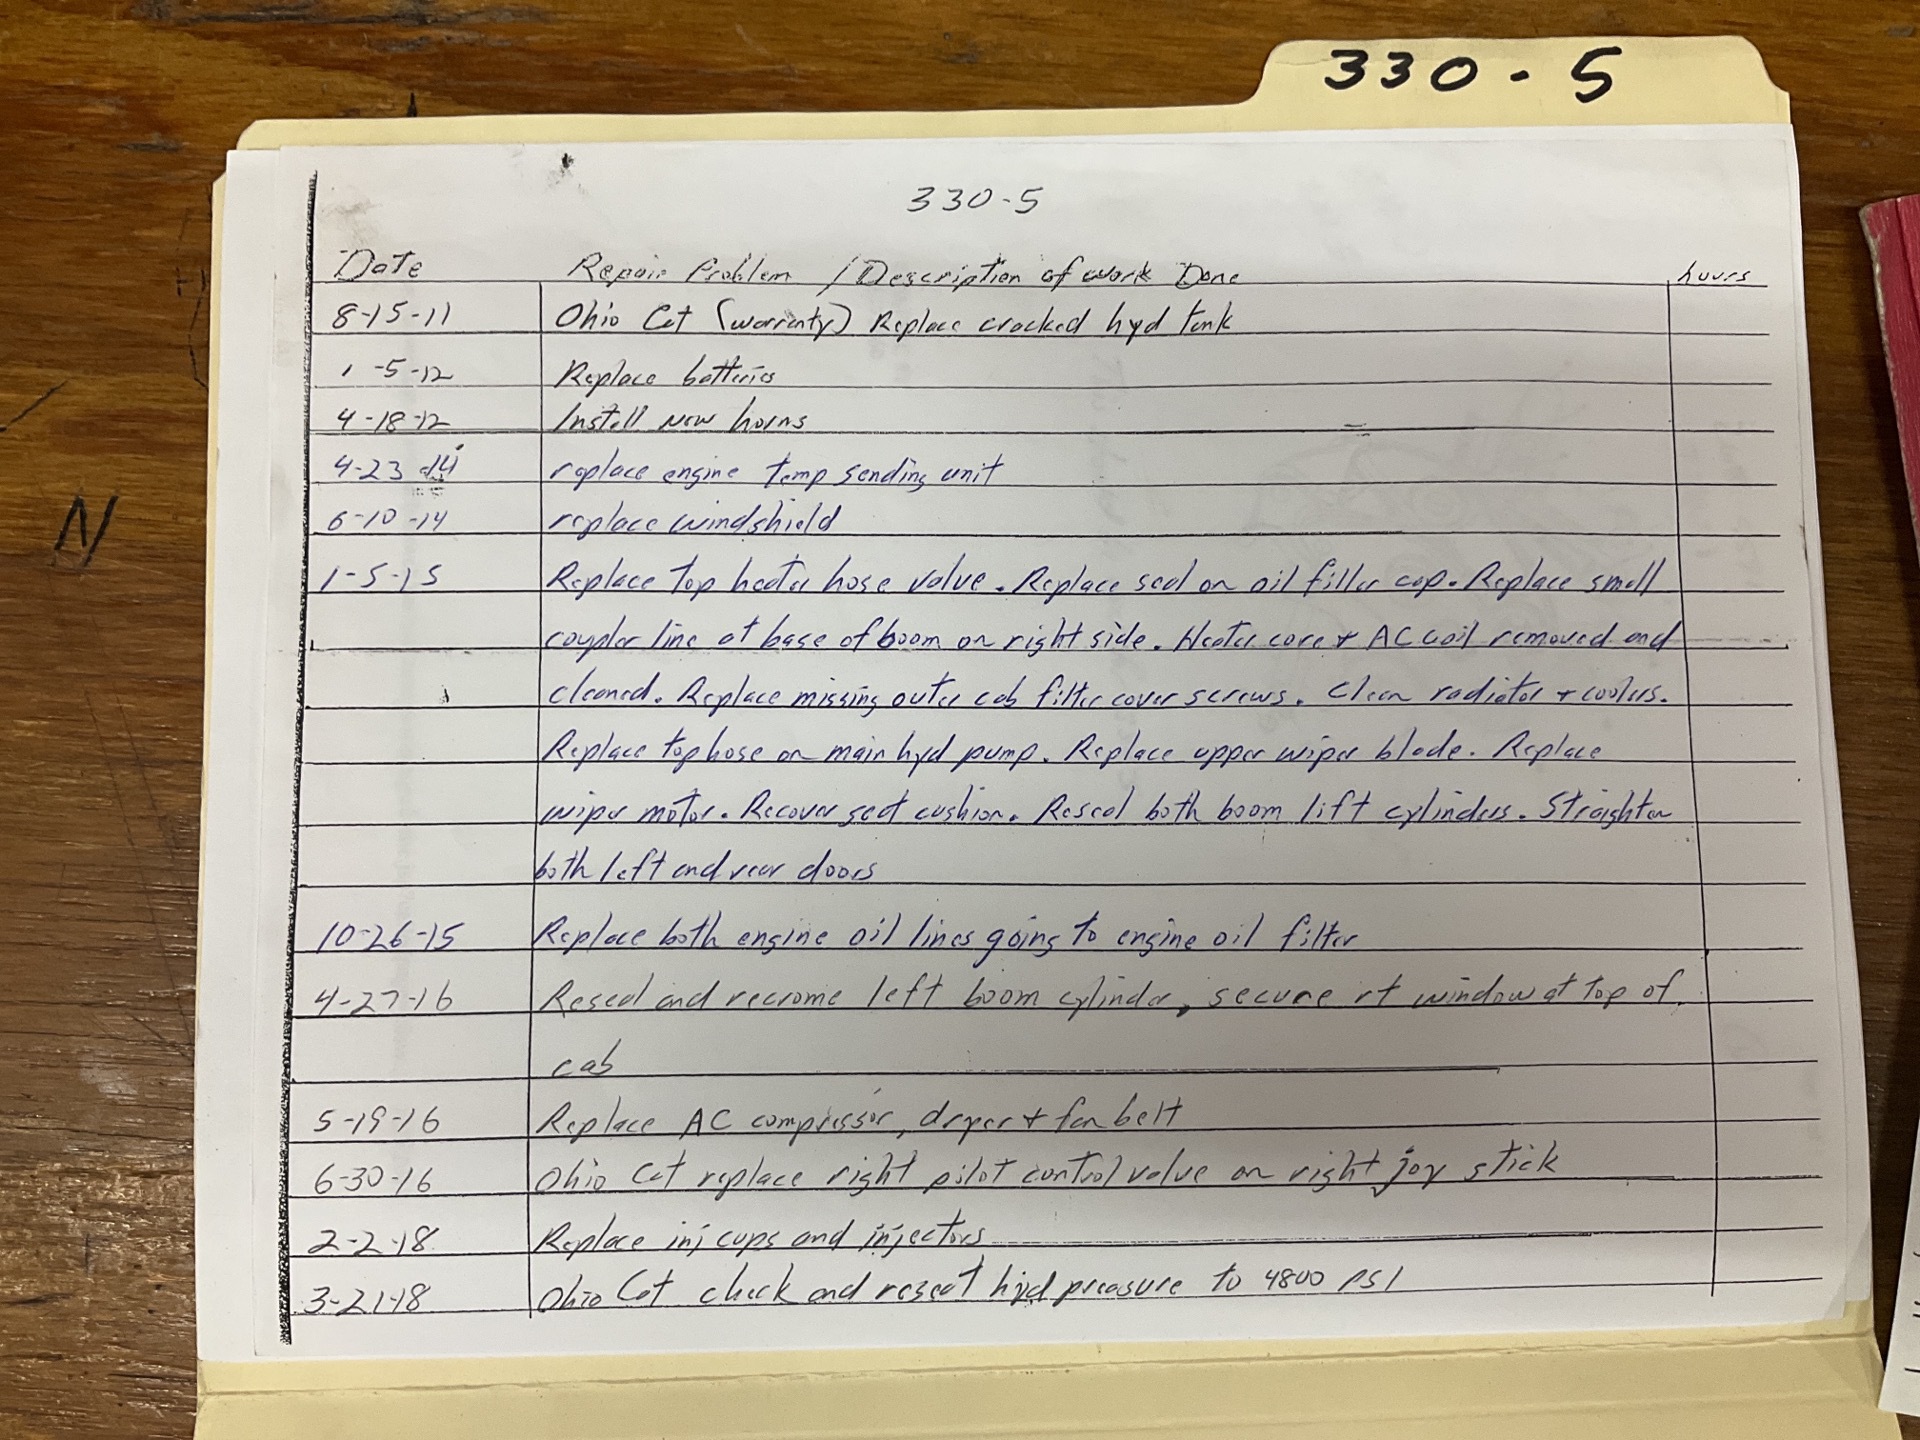 330-5
330-5
Date Repair Problem / Description of work Done hours
8-15-11 Ohio Cat (warranty) Replace cracked hyd tank
1-5-12 Replace batteries
4-18-12 Install new horns
4-23-14 replace engine temp sending unit
6-10-14 replace windshield
1-5-15 Replace top heater hose valve. Replace seal on oil filler cap. Replace small
coupler line at base of boom on right side. Heater core + AC coil removed and
cleaned. Replace missing outer cab filter cover screws. Clean radiator + coolers.
Replace top hose on main hyd pump. Replace upper wiper blade. Replace
wiper motor. Recover seat cushion. Reseal both boom lift cylinders. Straighten
both left and rear doors
10-26-15 Replace both engine oil lines going to engine oil filter
4-27-16 Reseal and recrome left boom cylinder, secure rt window at top of
cab
5-19-16 Replace AC compressor, dryer + fan belt
6-30-16 Ohio Cat replace right pilot control valve on right joy stick
2-2-18 Replace inj cups and injectors
3-21-18 Ohio Cat check and reseat hyd preasure to 4800 PSI
N